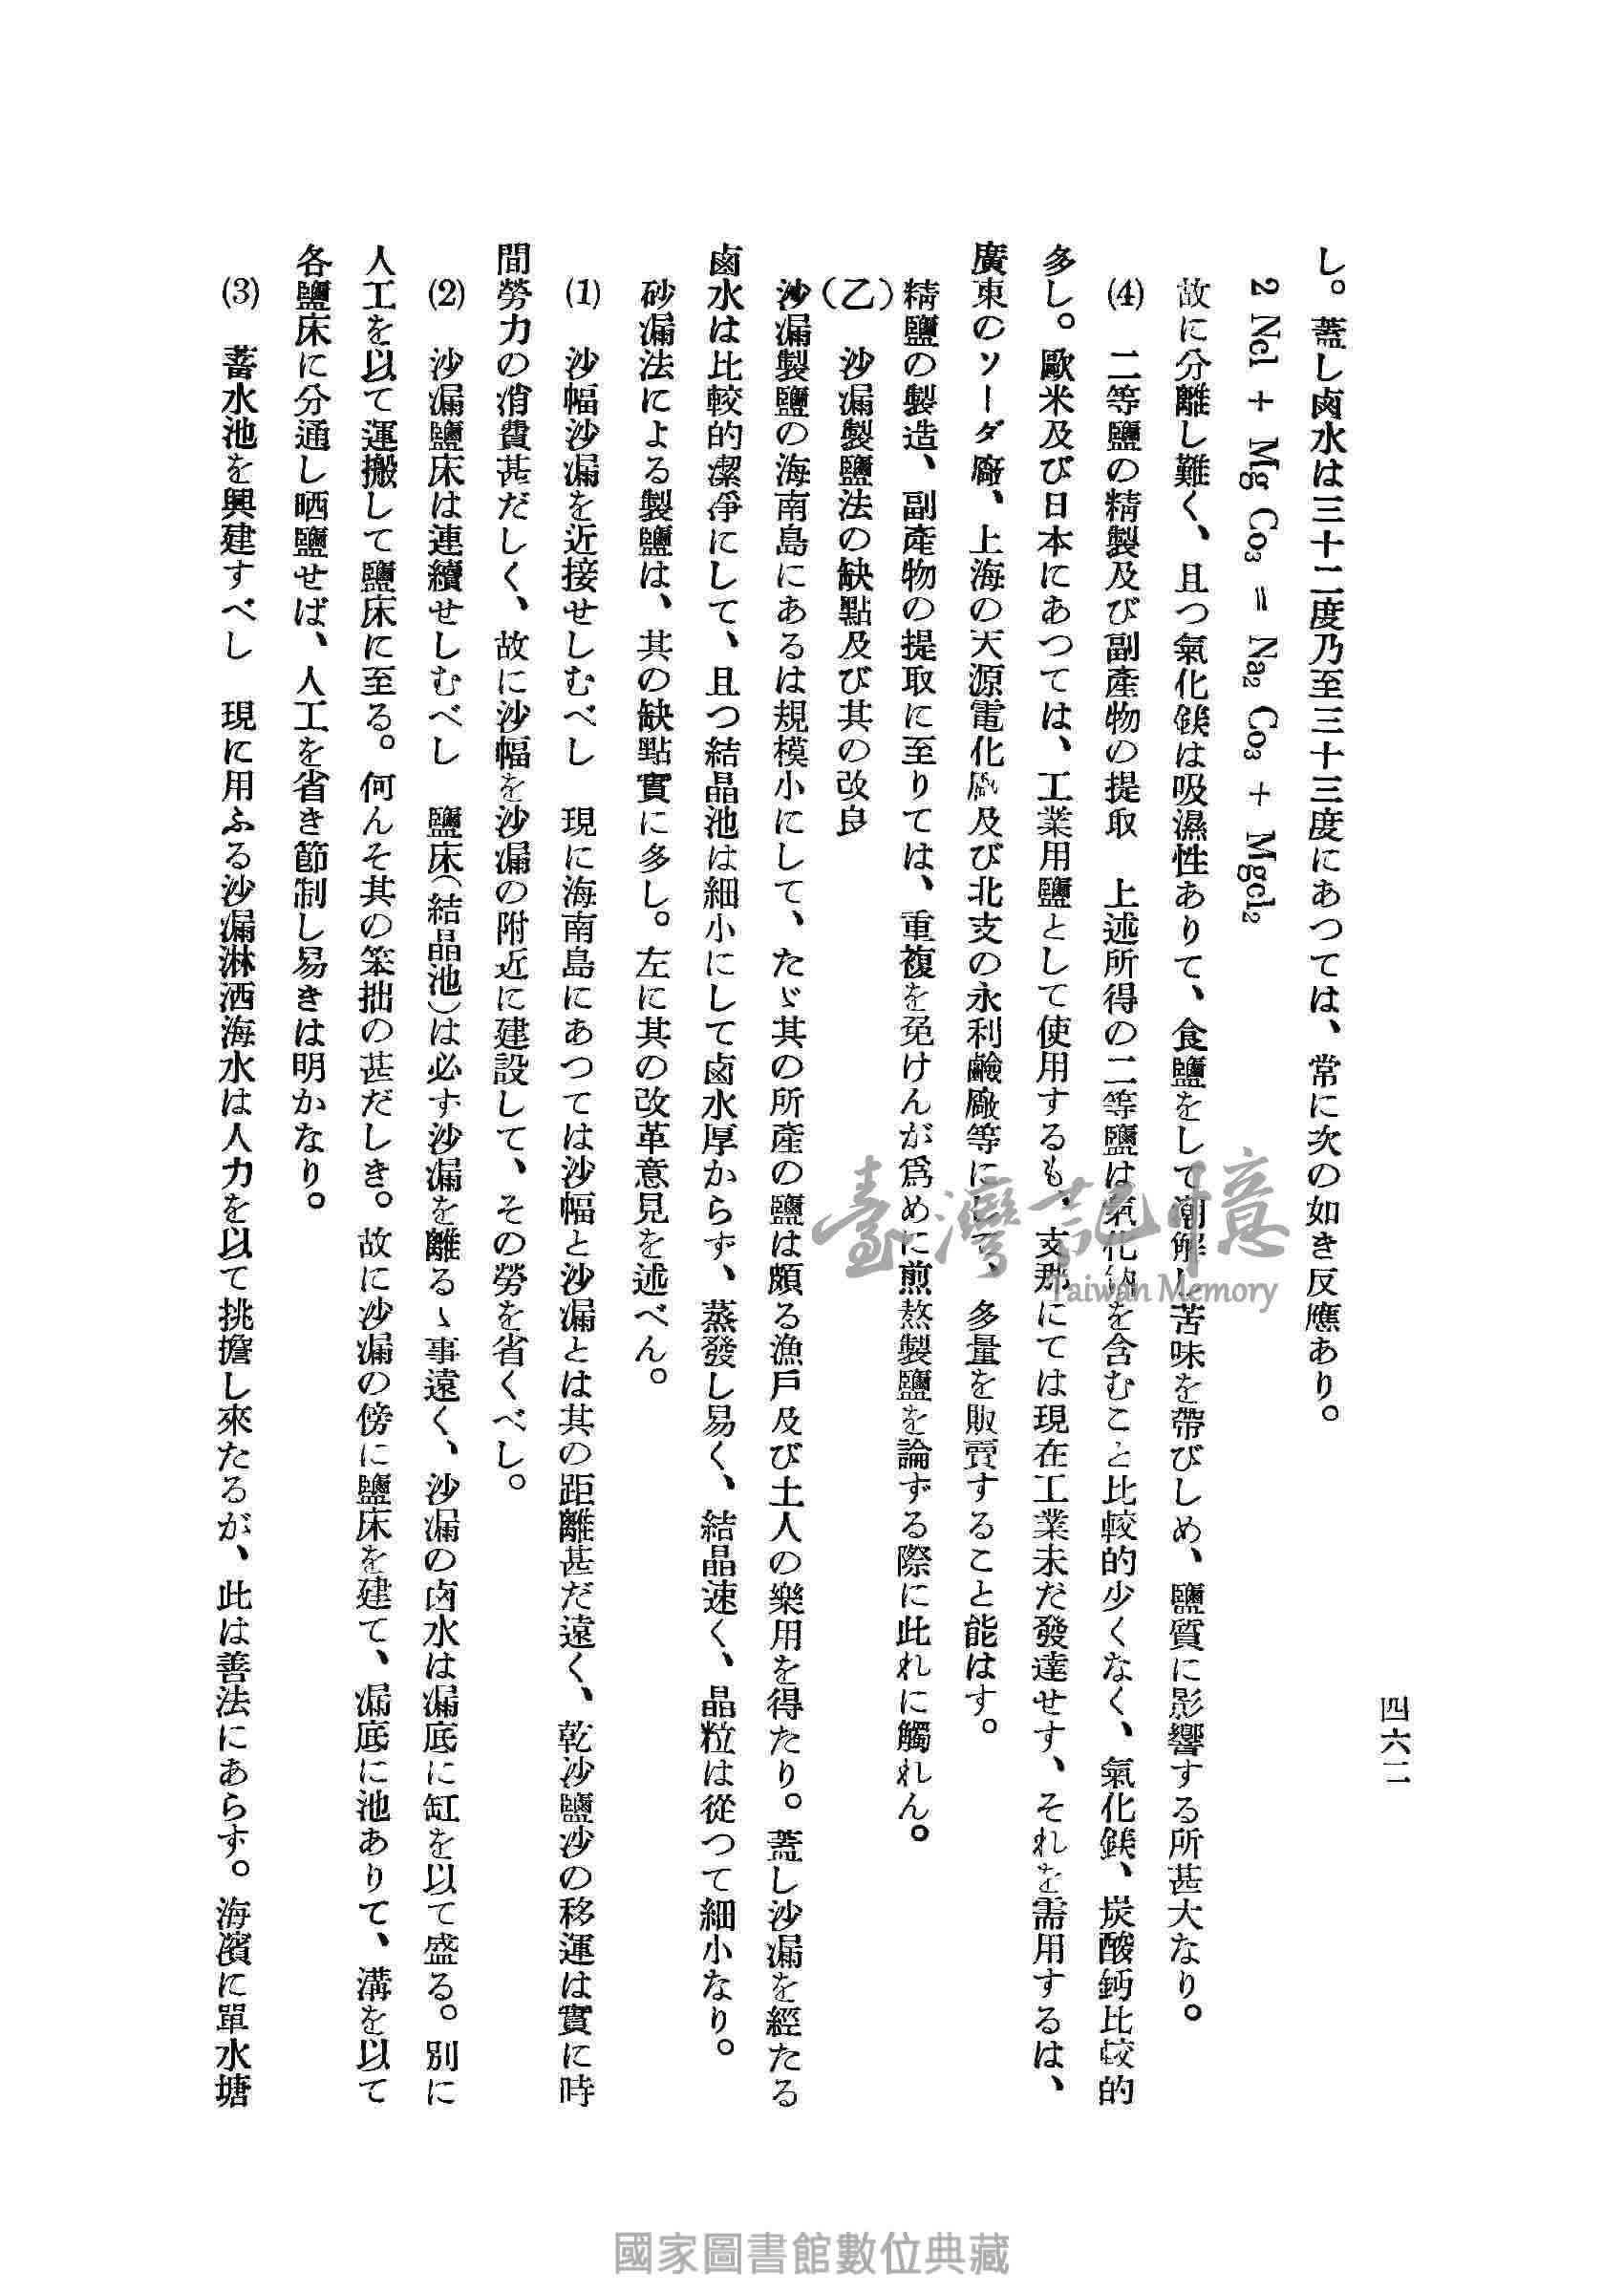 四六二
し。蓋し鹵水は三十二度乃至三十三度にあつては、常に次の如き反應あり。
2 Ncl + Mg Co₃ = Na₂ Co₃ + Mgcl₂
故に分離し難く、且つ氣化鎂は吸濕性ありて、食鹽をして潮解し苦味を帶びしめ、鹽質に影響する所甚大なり。
(4) 二等鹽の精製及び副產物の提取 上述所得の二等鹽は氣化鈉を含むこと比較的少くなく、氣化鎂、炭酸鈣比較的
多し。歐米及び日本にあつては、工業用鹽として使用するも、支那にては現在工業未だ發達せす、それを需用するは、
廣東のソーダ廠、上海の天源電化廠及び北支の永利鹼廠等にして、多量を販賣すること能はす。
精鹽の製造、副產物の提取に至りては、重複を免けんが爲めに煎熬製鹽を論ずる際に此れに觸れん。
(乙) 沙漏製鹽法の缺點及び其の改良
沙漏製鹽の海南島にあるは規模小にして、たゞ其の所產の鹽は頗る漁戶及び土人の樂用を得たり。蓋し沙漏を經たる
鹵水は比較的潔淨にして、且つ結晶池は細小にして鹵水厚からず、蒸發し易く、結晶速く、晶粒は從つて細小なり。
砂漏法による製鹽は、其の缺點實に多し。左に其の改革意見を述べん。
(1) 沙幅沙漏を近接せしむべし 現に海南島にあつては沙幅と沙漏とは其の距離甚だ遠く、乾沙鹽沙の移運は實に時
間勞力の消費甚だしく、故に沙幅を沙漏の附近に建設して、その勞を省くべし。
(2) 沙漏鹽床は連續せしむべし 鹽床(結晶池)は必ず沙漏を離るゝ事遠く、沙漏の鹵水は漏底に缸を以て盛る。別に
人工を以て運搬して鹽床に至る。何んそ其の笨拙の甚だしき。故に沙漏の傍に鹽床を建て、漏底に池ありて、溝を以て
各鹽床に分通し晒鹽せば、人工を省き節制し易きは明かなり。
(3) 蓄水池を興建すべし 現に用ふる沙漏淋洒海水は人力を以て挑擔し來たるが、此は善法にあらず。海濱に單水塘
臺灣記憶
Taiwan Memory
國家圖書館數位典藏